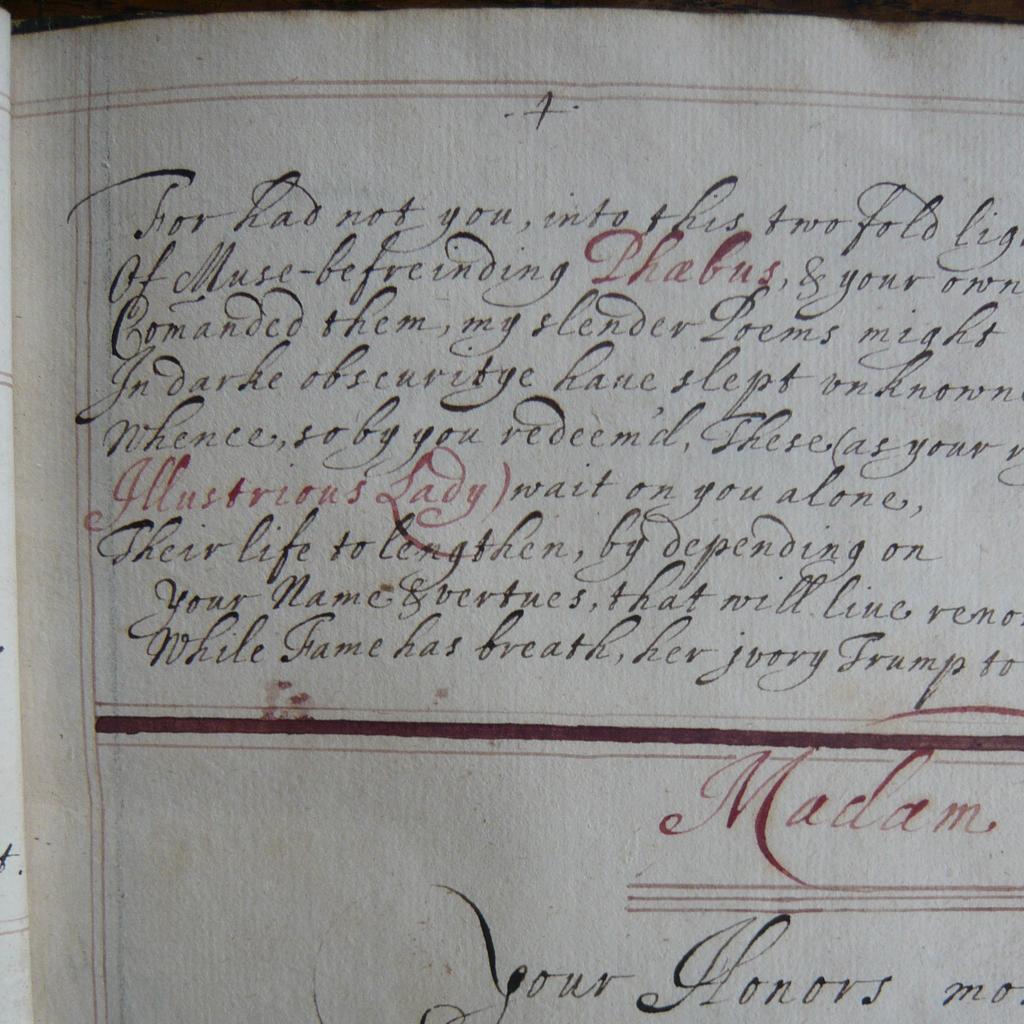 4
For had not you, into this two fold lig
Of Muse-befreinding Phæbus, & your own
Comanded them, my slender Poems might
In darke obscuritye haue slept vnknowne
Whence, so by you redeem'd, These (as your
Illustrious Lady) wait on you alone,
Their life to lengthen, by depending on
your Name & vertues, that will liue reno
While Fame has breath, her jvory Trump to
Madam
your Honors mo